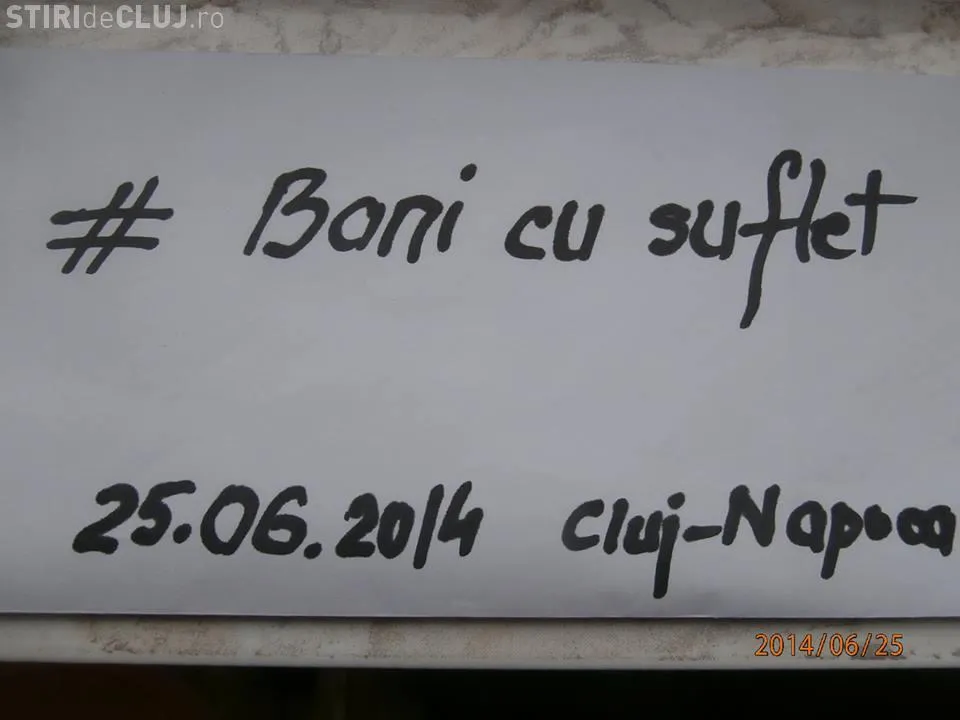 STIRIdeCLUJ.ro
# Bani cu suflet
25.06.2014 Cluj-Napoca
2014/06/25